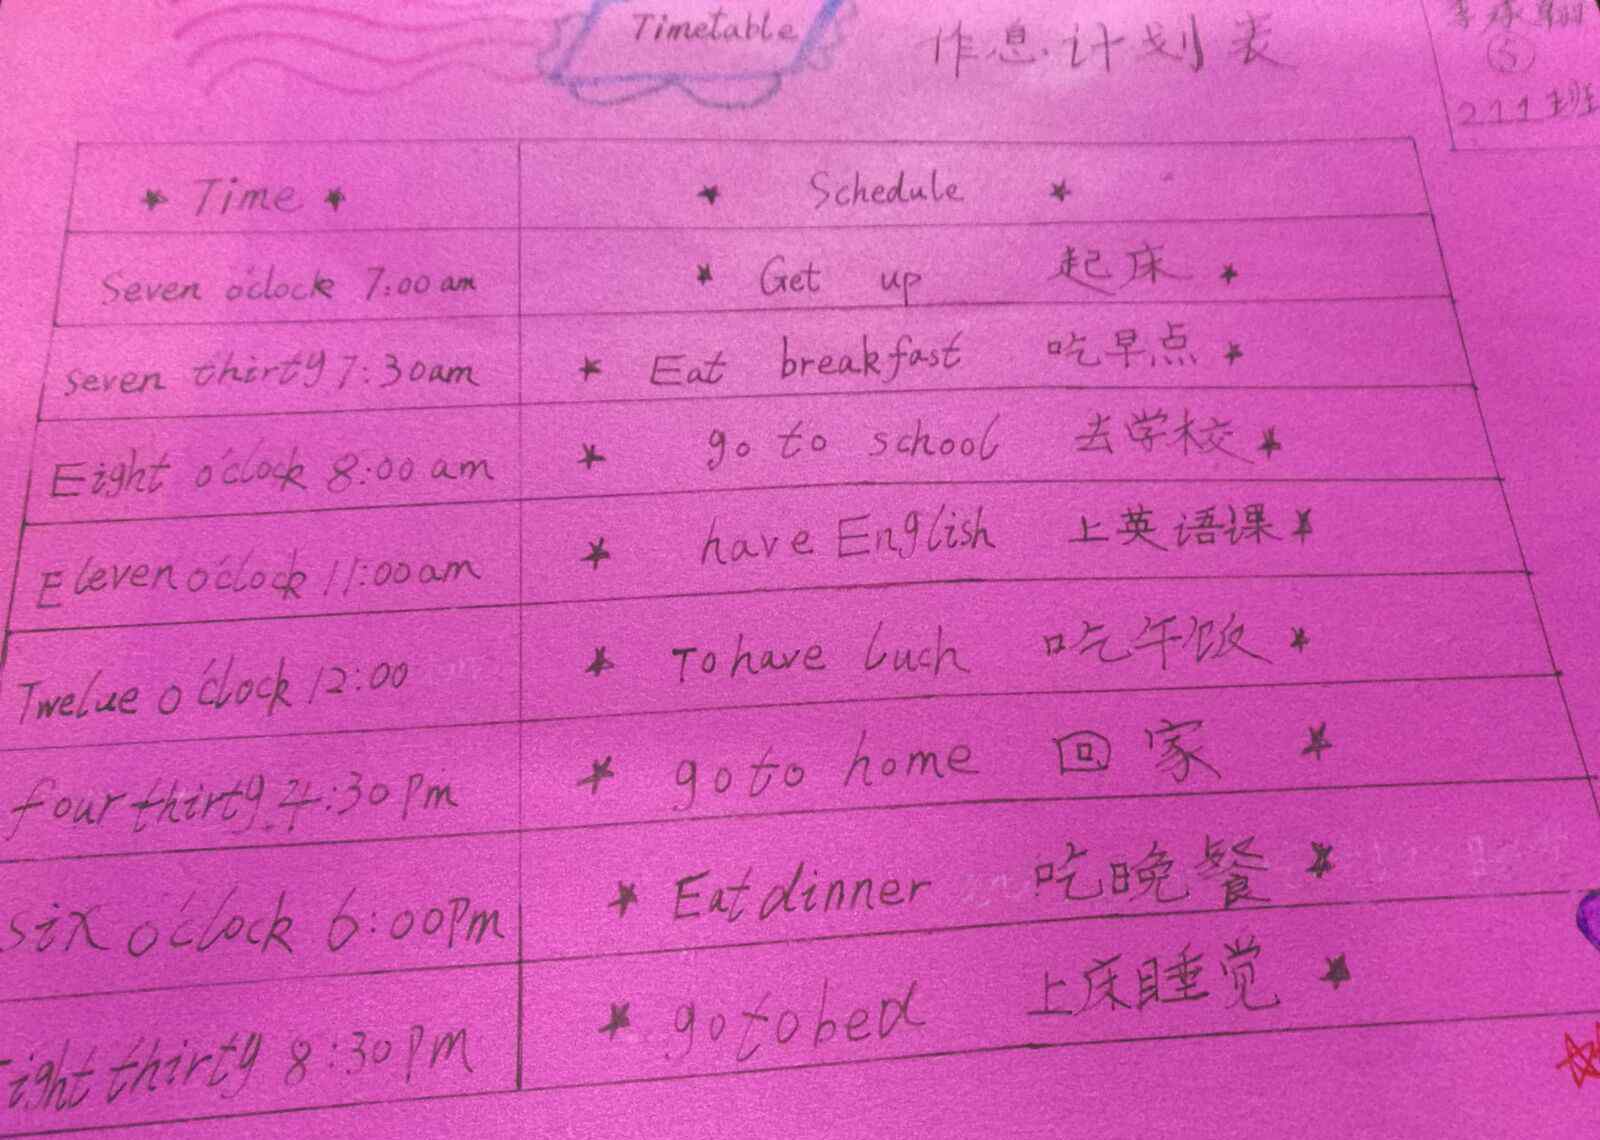 Timetable 作息计划表
⑤
211班
★ Time ★ ★ Schedule ★
Seven o'clock 7:00 am ★ Get up 起床 ★
Seven thirty 7:30am ★ Eat breakfast 吃早点 ★
Eight o'clock 8:00 am ★ go to school 去学校 ★
Eleven o'clock 11:00am ★ have English 上英语课 ★
Twelue o'clock 12:00 ★ To have luch 吃午饭 ★
four thirty 4:30pm ★ go to home 回家 ★
Six o'clock 6:00pm ★ Eat dinner 吃晚餐 ★
Eight thirty 8:30pm ★ go to bed 上床睡觉 ★